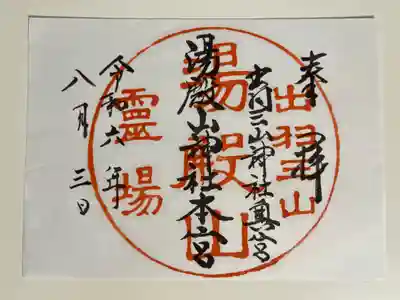 奉拝
出羽三山神社奥宮
湯殿山神社本宮
令和六年
八月三日
出羽三山
湯殿山
霊場